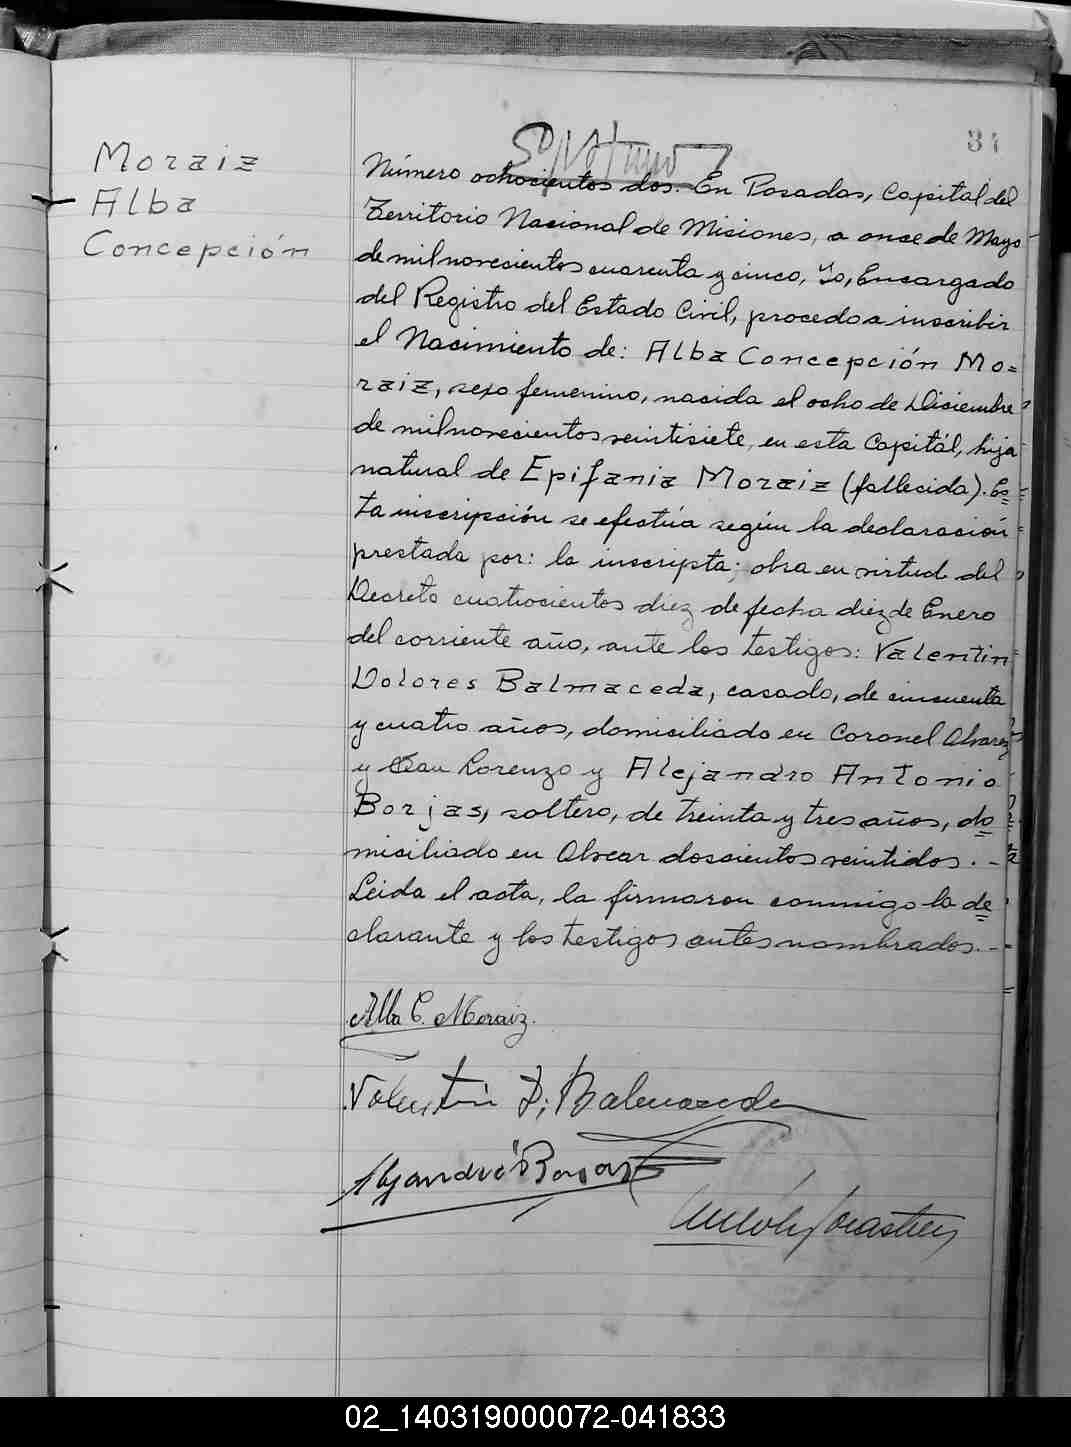 34
Moraiz
Alba
Concepción
Número ochocientos dos. En Posadas, Capital del
Territorio Nacional de Misiones, a once de Mayo
de mil novecientos cuarenta y cinco, Yo, Encargado
del Registro del Estado Civil, procedo a inscribir
el Nacimiento de: Alba Concepción Mo=
raiz, sexo femenino, nacida el ocho de Diciembre
de mil novecientos veintisiete, en esta Capital, hija
natural de Epifania Moraiz (fallecida). Es=
ta inscripción se efectúa según la declaración
prestada por: la inscripta; obra en virtud del
Decreto cuatrocientos diez de fecha diez de Enero
del corriente año, ante los testigos: Valentin
Dolores Balmaceda, casado, de cincuenta
y cuatro años, domiciliado en Coronel Alvarez
y San Lorenzo y Alejandro Antonio
Borjas, soltero, de treinta y tres años, do=
miciliado en Alvear doscientos veintidos. -
Leida el acta, la firmaron conmigo la de=
clarante y los testigos antes nombrados. -
Alba C. Moraiz.
Valentin D. Balmaceda
Alejandro Borjas
02_140319000072-041833